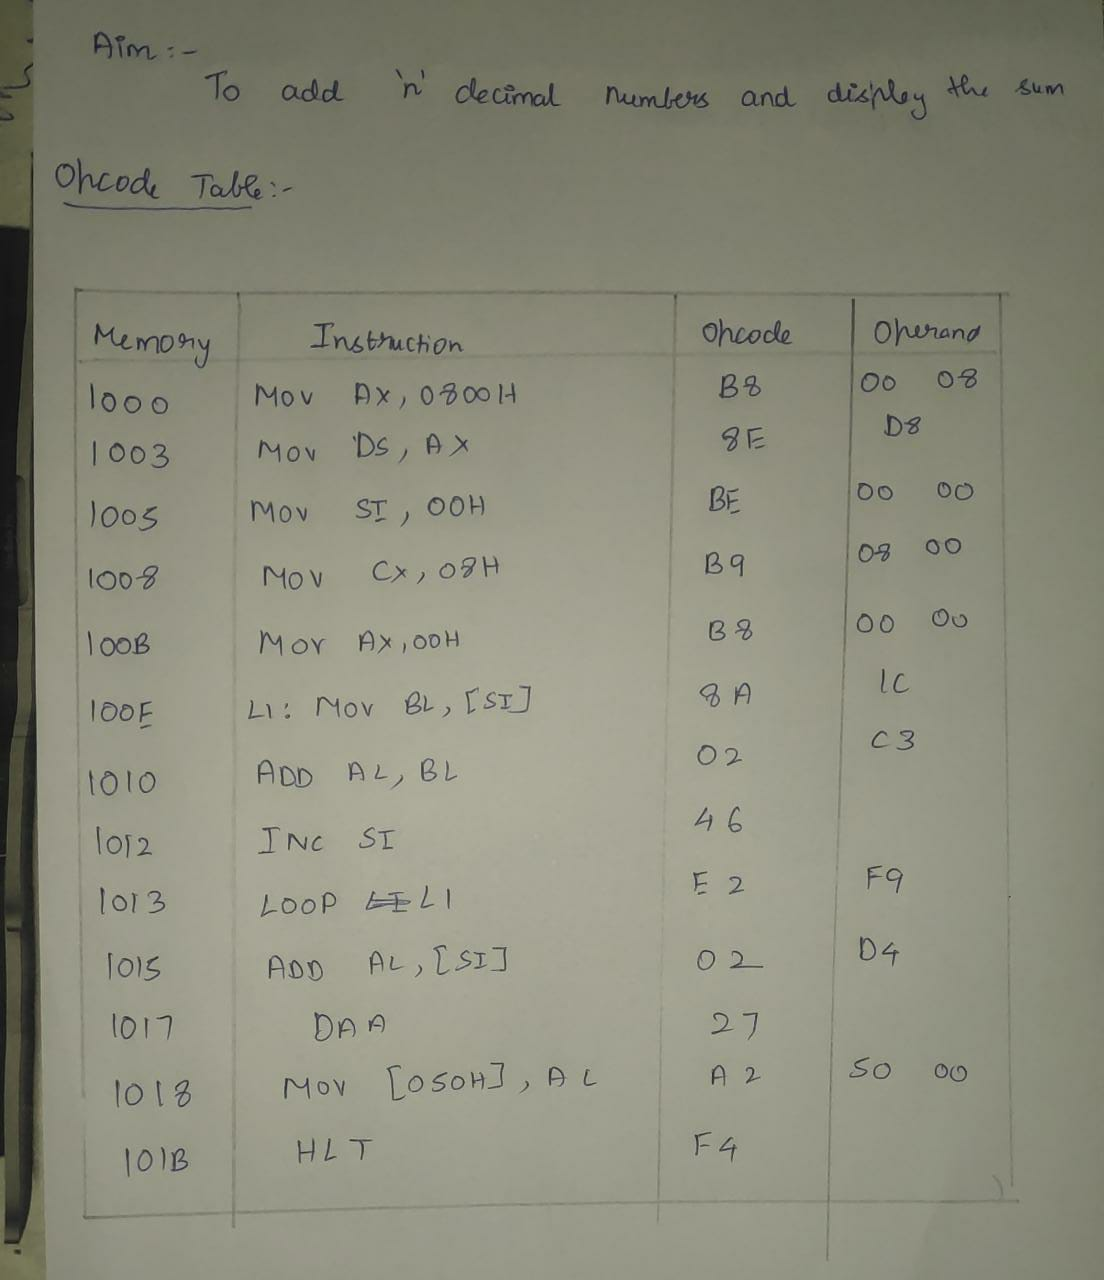 Aim :-
To add 'n' decimal numbers and display the sum
Opcode Table:-
Memory Instruction Opcode Operand
1000 MOV AX, 0800H B8 00 08
1003 MOV DS, AX 8E D8
1005 MOV SI, 00H BE 00 00
1008 MOV CX, 08H B9 08 00
100B MOV AX, 00H B8 00 00
100E L1: MOV BL, [SI] 8A 1C
1010 ADD AL, BL 02 C3
1012 INC SI 46
1013 LOOP L1 E2 F9
1015 ADD AL, [SI] 02 D4
1017 DAA 27
1018 MOV [050H], AL A2 50 00
101B HLT F4